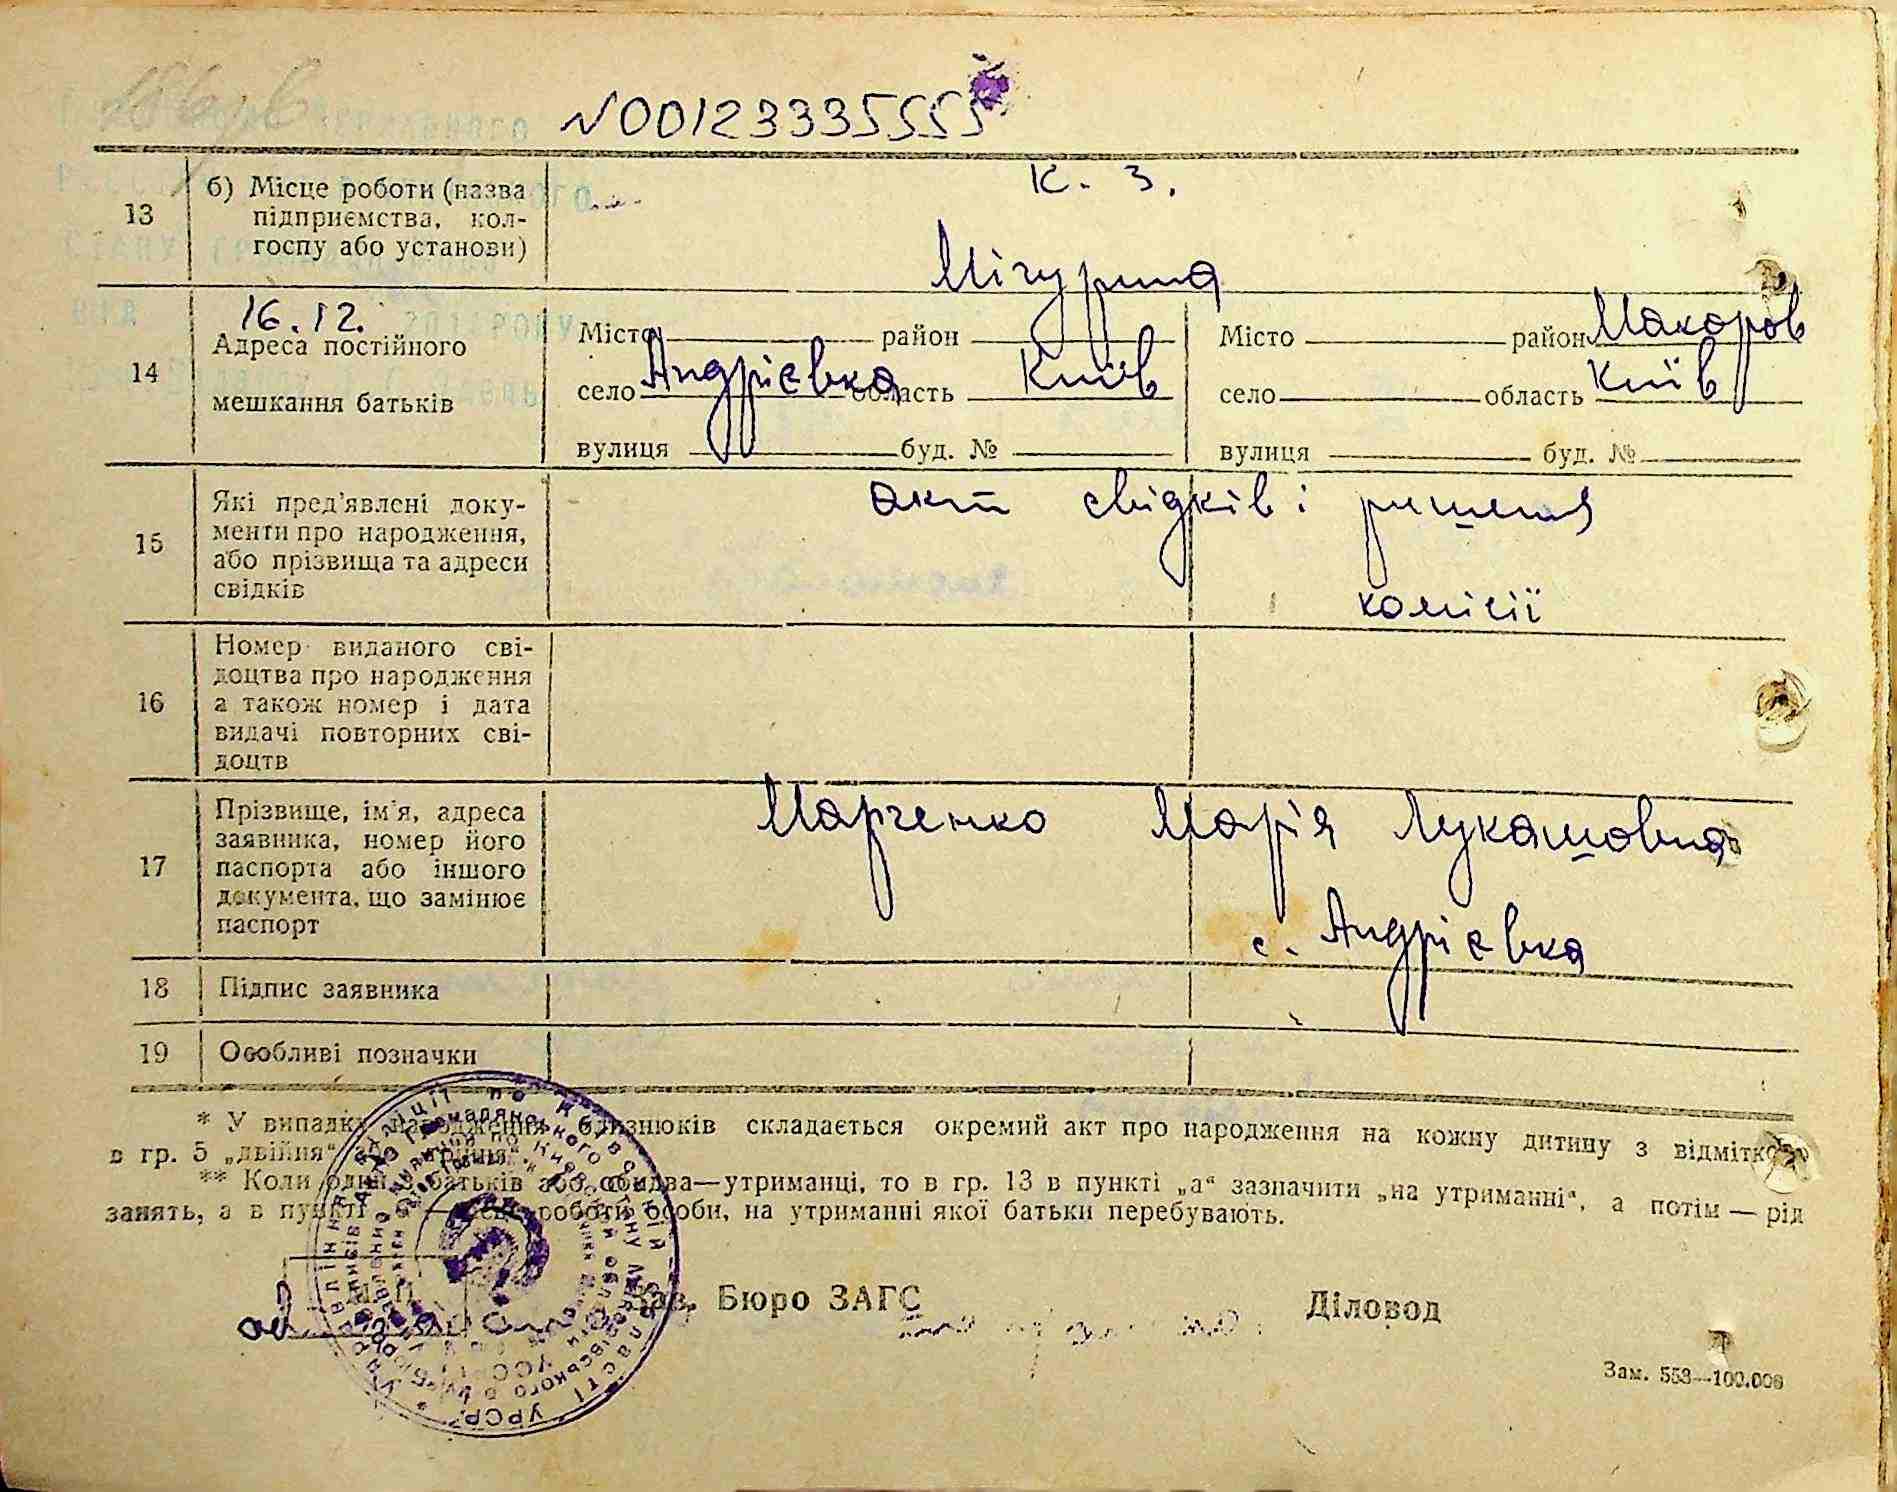 N00123335555
13 б) Місце роботи (назва
підприємства, кол-
госпу або установи)
к. з.
Мічурина
16.12.
14 Адреса постійного
мешкання батьків
Місто район
село Андрієвка область Київ
вулиця буд. №
Місто район Макаров
село область Київ
вулиця буд. №
15 Які пред'явлені доку-
менти про народження,
або прізвища та адреси
свідків
акт свідків і ришення
комісії
16 Номер виданого сві-
доцтва про народження
а також номер і дата
видачі повторних сві-
доцтв
17 Прізвище, ім'я, адреса
заявника, номер його
паспорта або іншого
документа, що замінює
паспорт
Марченко Марія Лукашовна
с. Андрієвка
18 Підпис заявника
19 Особливі позначки
* У випадку народження близнюків складається окремий акт про народження на кожну дитину з відміткою
в гр. 5 „двійня“ або „трійня“.
** Коли один з батьків або обидва—утриманці, то в гр. 13 в пункті „а“ зазначити „на утриманні“, а потім — рід
занять, а в пункті роботи особи, на утриманні якої батьки перебувають.
М. П. Зав. Бюро ЗАГС Діловод
Зам. 553—100.000